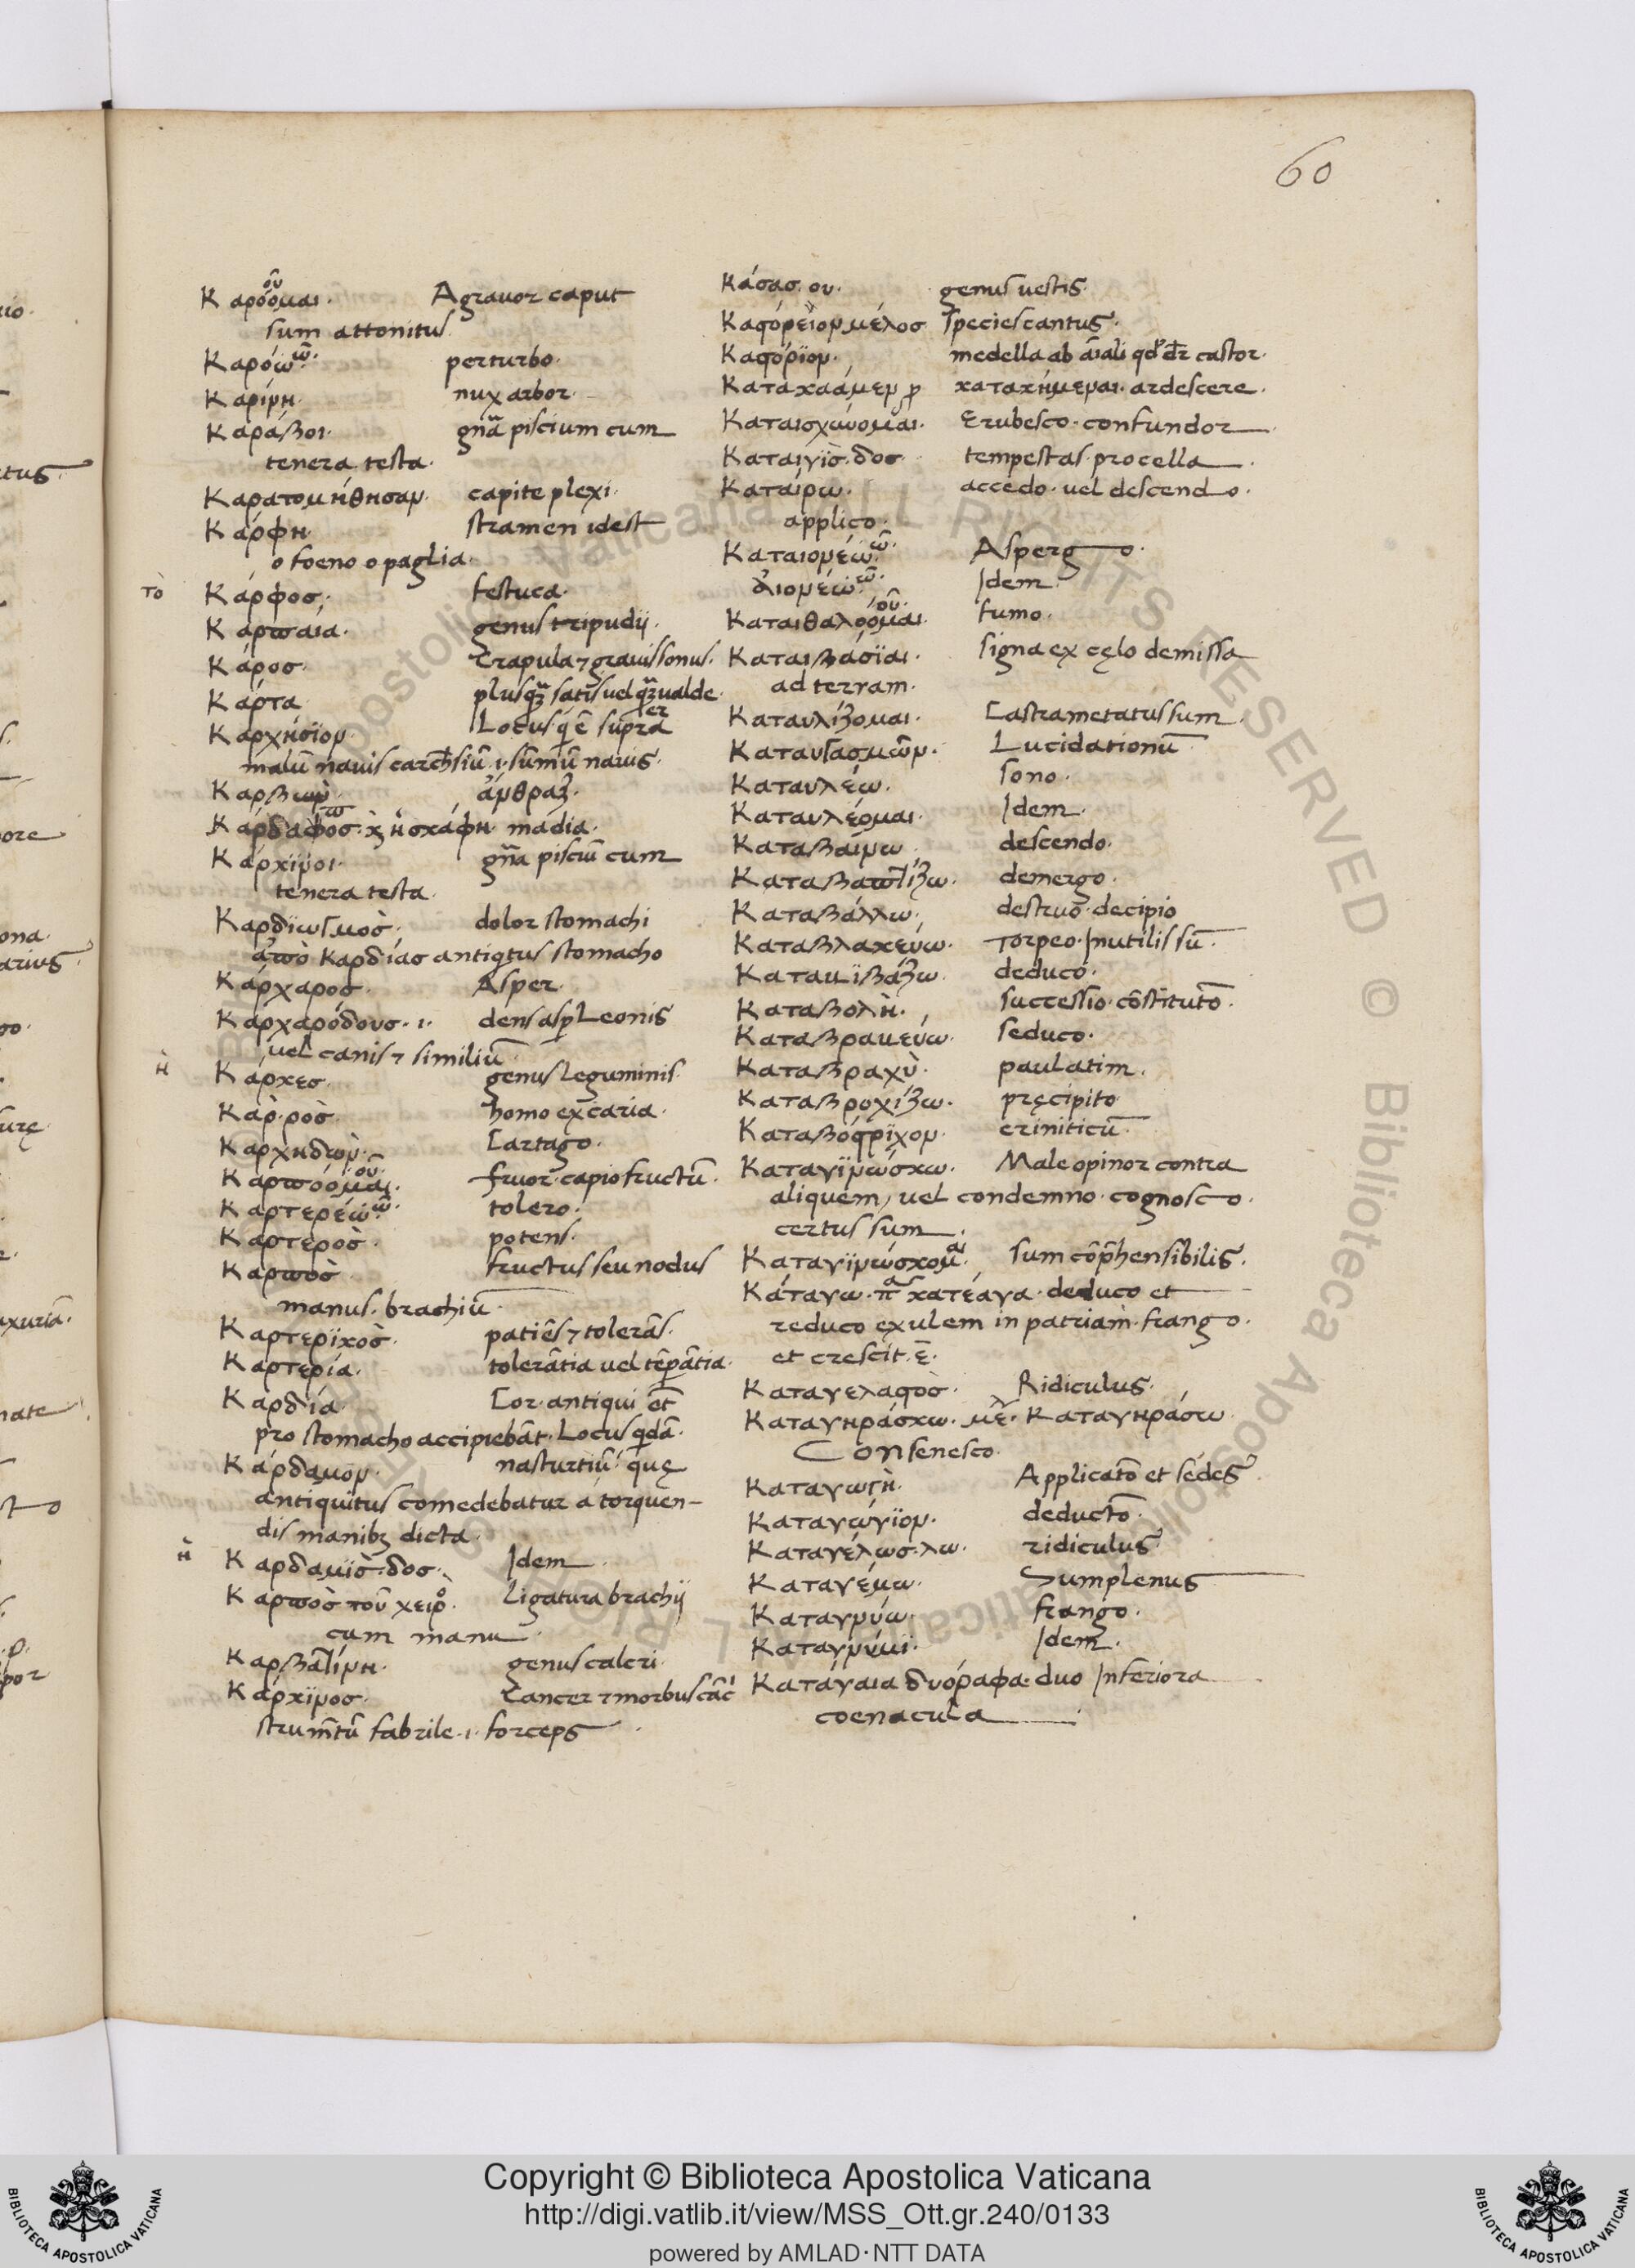 60
Καρόομαι οῦ. Agrauor caput
sum attonitus.
Καρόω ῶ. perturbo.
Καρύνη. nux arbor.
Κάραβοι. gña piscium cum
tenera testa.
Καρατομήθησαν. capite plexi.
Κάρφη. stramen idest
o foeno o paglia.
τὸ Κάρφος. festuca.
Καρπαία. genus tripudij.
Κάρος. Crapula ⁊ grauis sonus.
Κάρτα plusqȝ satis uel qȝ ualde.
Καρχήσϊον. Locus q́ ē supra
malū nauis carchesiū .i. sumū nauis.
Καρβων̀. ἄνθραξ.
Κάρδαφος. ἡ σκάφη. madia.
Κάρκϊνοι. gña pisciū cum
tenera testa.
Καρδϊωγμὸς. dolor stomachi
ἀπὸ καρδίας antiqtus stomacho
Κάρχαρος. Asper.
Καρχαρόδους. .i. dens asp Leonis
uel canis ⁊ similiū.
ἡ Κάρχες. genus leguminis.
Κὰρ. ρὸς. homo ex caria.
Καρχηδὼν. Cartago.
Καρπόομαι οῦ. fruor. capio fructū.
Καρτερέω ῶ. tolero.
Καρτερὸς. potens.
Καρπὸς. fructus seu nodus
manus. brachiū.
Καρτερϊκὸς. patiēs ⁊ tolerās.
Καρτερία. tolerātia uel tēperātia.
Καρδία. Cor. antiqui et̄
pro stomacho accipiebāt. Locus qdā.
Κάρδαμον. nasturtiū. quę
antiquitus comedebatur a torquen-
dis manibȝ dicta.
ἡ Καρδαμϊς. δος. Idem
Καρπὸς τοῦ χειρο. Ligatura brachij
cum manu.
Καρβατίνη. genus calcei.
Κάρκϊνος. Cancer ⁊ morbus
strumētū fabrile .i. forceps.
Κάσας. ου. genus uestis.
Καστόρειον μέλος species cantus.
Καστόρϊον. medella ab aiali qd dr castor.
Κατακαάμεν κατακήμεναι. ardescere.
Καταισχύνομαι. Erubesco. confundor
Καταιγὶς. δος. tempestas. procella.
Καταίρω. accedo. uel descendo.
applico.
Καταιονέω ῶ. Aspergo.
διονέω ῶ. Idem.
Καταιθαλόομαι οῦ. fumo.
Καταιβάσϊαι. signa ex cęlo demissa
ad terram.
Καταυλίζομαι. Castrametatus sum.
Καταυγασμῶν. Lucidationū.
Καταυλέω. sono.
Καταυλέομαι. Idem.
Καταβαίνω descendo.
Καταβαπτίζω. demergo.
Καταβάλλω. destruo. decipio
Καταβλακεύω. Torpeo. Inutilis sū.
Καταβϊβάζω. deduco.
Καταβολὴ. successio. cōstitutō.
Καταβραβεύω. seduco.
Καταβραχὺ. paulatim.
Καταβροχίζω. pręcipito
Καταβόστρϊχον. criniticū.
Καταγϊνώσκω. Male opinor contra
aliquem, uel condemno. cognosco.
certus sum.
Καταγϊνώσκομαι. sum cōprehensibilis.
Κάταγω. κατέαγα. deduco et
reduco exulem in patriam. frango.
et crescit. ε̄.
Καταγελαστὸς. Ridiculus.
Καταγηράσκω. μέ. Καταγηράσω
Consenesco.
Καταγωγὴ. Applicatō et sedes.
Καταγώγϊον. deductō.
Καταγέλως. λω. ridiculus.
Καταγέμω. Sum plenus
Καταγνύω. frango.
Καταγνύμϊ. Idem.
Κατάγαια δυόραφα. duo Inferiora
coenacula.
Copyright © Biblioteca Apostolica Vaticana
http://digi.vatlib.it/view/MSS_Ott.gr.240/0133
powered by AMLAD·NTT DATA
BIBLIOTECA APOSTOLICA VATICANA
BIBLIOTECA APOSTOLICA VATICANA